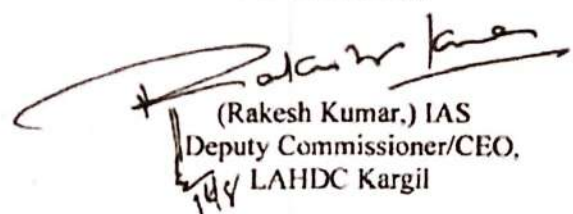 Rakesh Kumar
(Rakesh Kumar,) IAS
Deputy Commissioner/CEO,
LAHDC Kargil